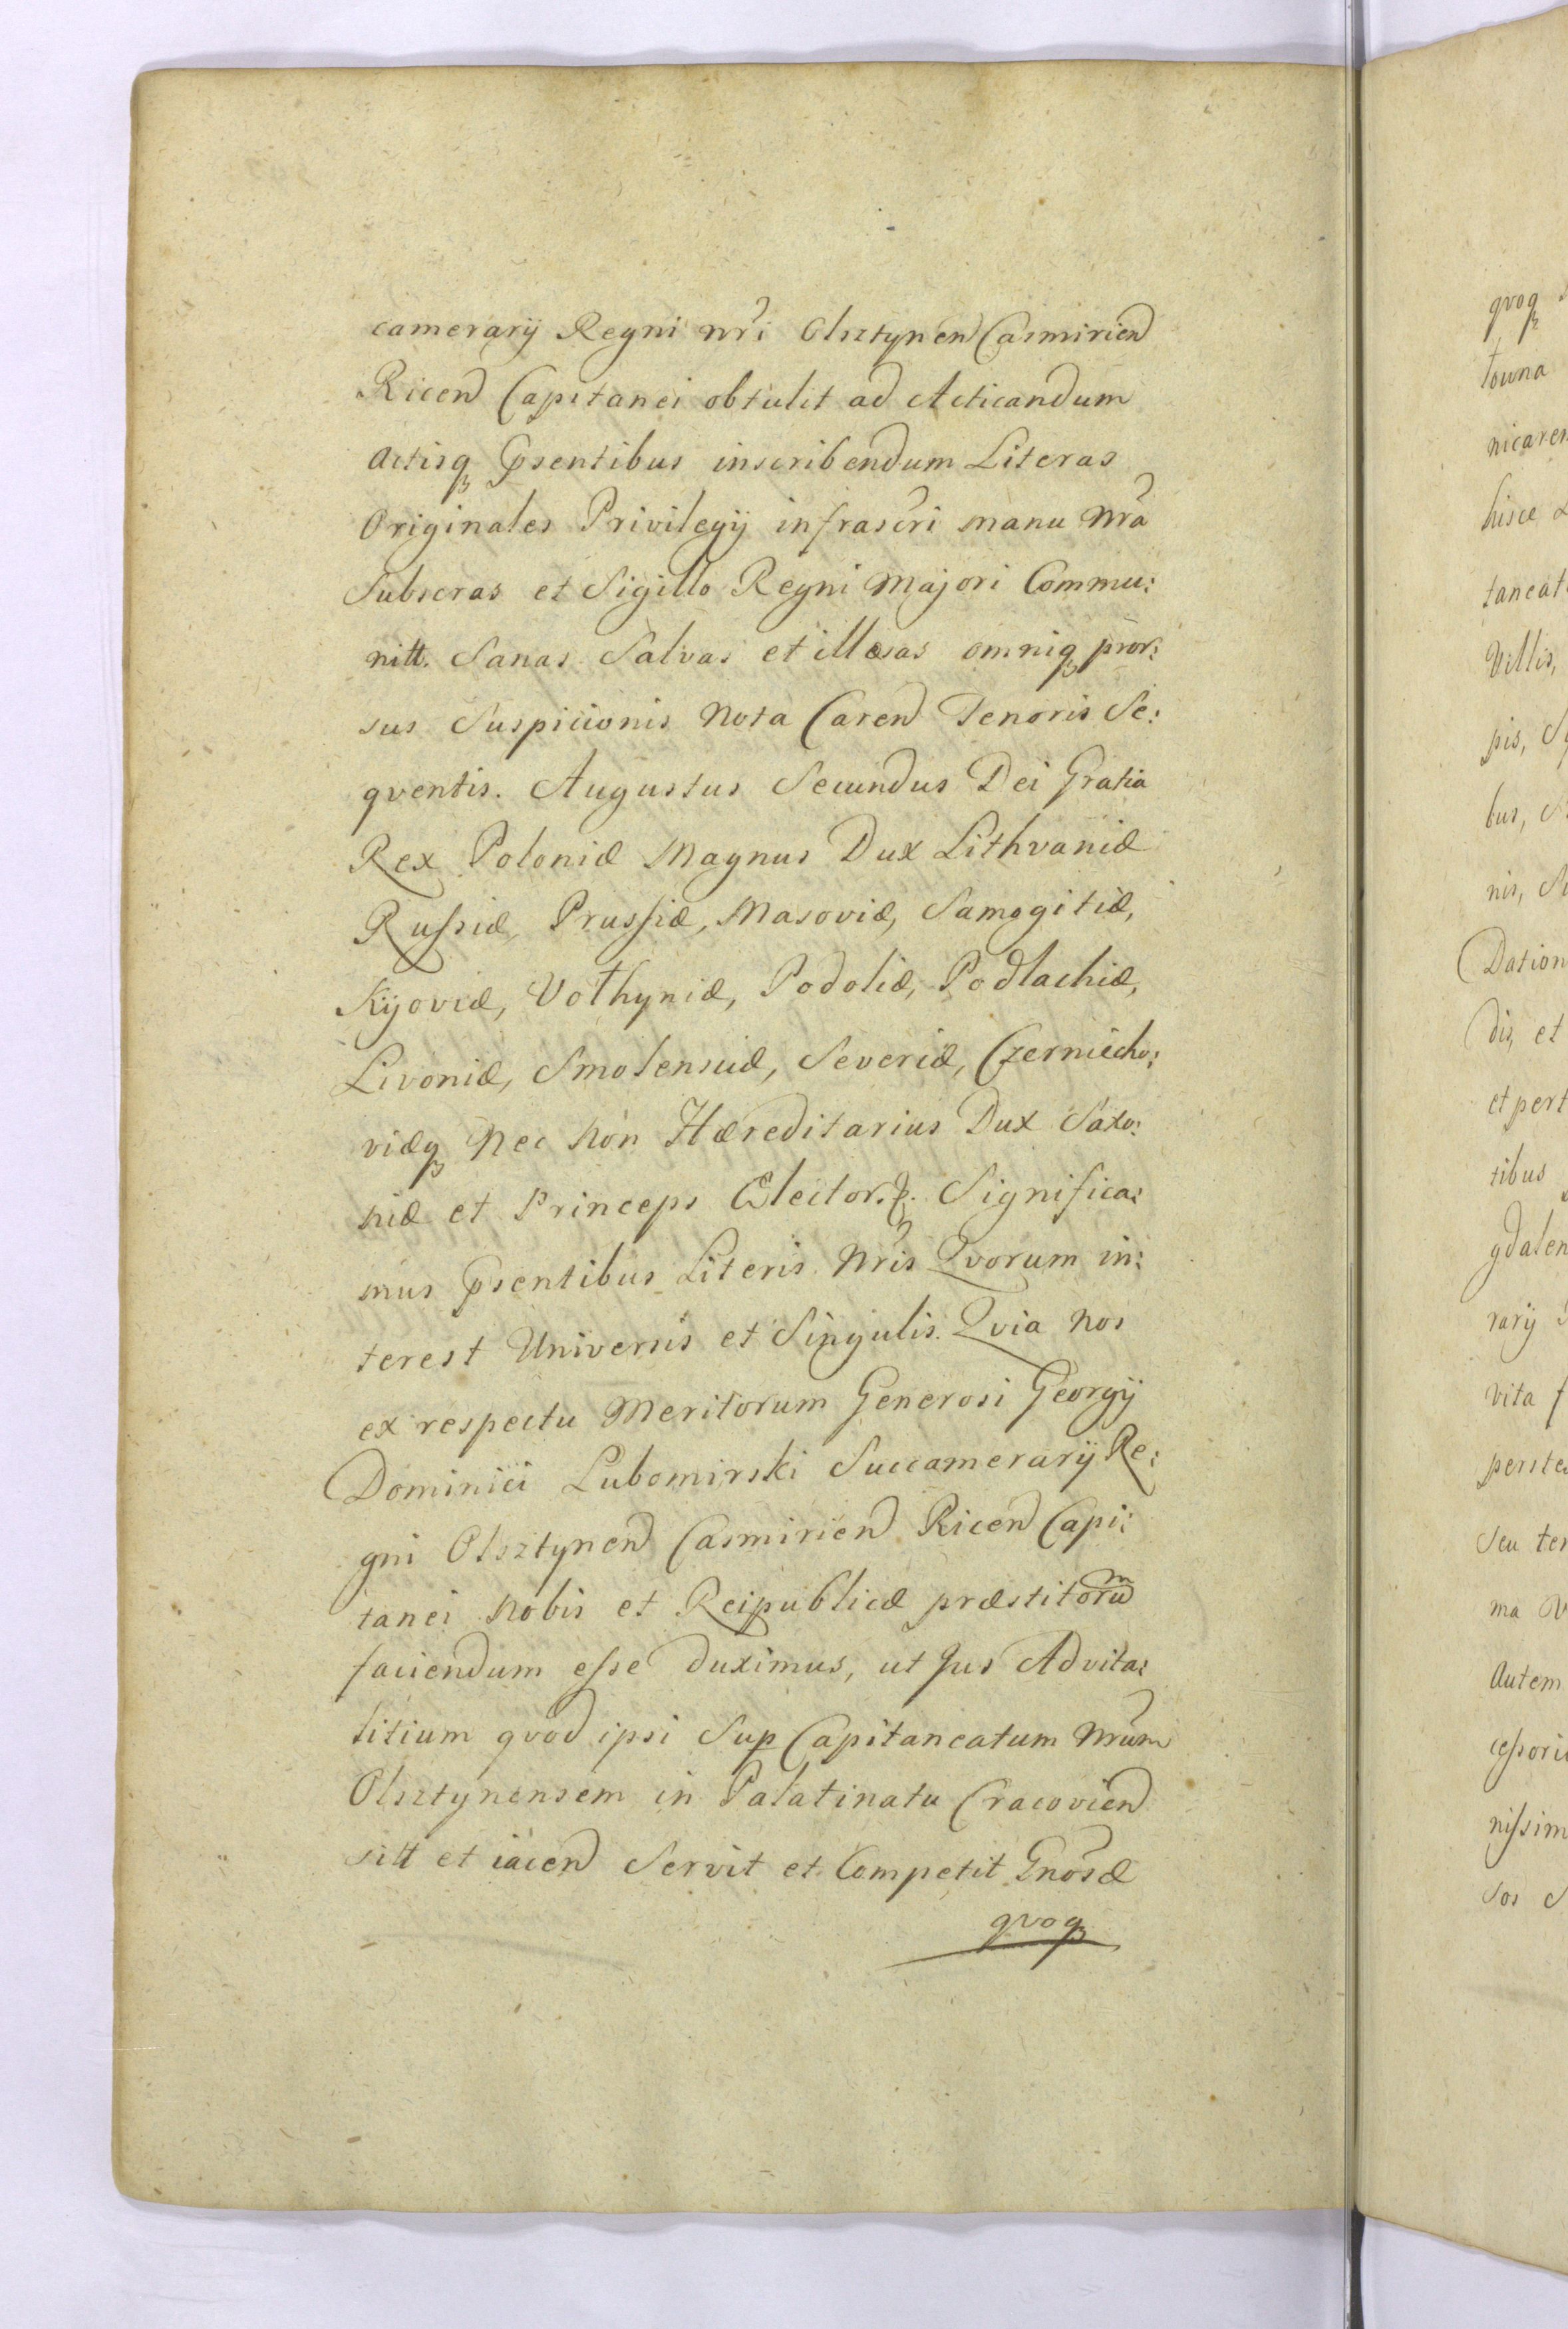 camerarij Regni nr̃i Olsztynen Casmirien
Ricen Capitanei obtulit ad Acticandum
Actisq₃ Psentibus inscribendum Literas
Originales Privilegij infrascr̃i manu Nr̃a
Subscras et Sigillo Regni Majori Commu:
nitt. Sanas Salvas et illæsas omniq₃ pror:
sus Suspicionis Nota Caren Tenoris Se:
qventis. Augustus Secundus Dei Gratia
Rex Poloniæ Magnus Dux Lithvaniæ
Russiæ, Prussiæ, Masoviæ, Samogitiæ,
Kijoviæ, Volhyniæ, Podoliæ, Podlachiæ,
Livoniæ, Smolensciæ, Severiæ, Czerniecho:
viæq₃ Nec Non Hæreditarius Dux Saxo:
niæ et Princeps Elector. Significa:
mus Psentibus Literis Nr̃is Qvorum in:
terest Universis et Singulis. Qvia Nos
ex respectu Meritorum Generosi Georgij
Dominici Lubomirski Succamerarij Re:
gni Olsztynen Casmirien Ricen Capi:
tanei Nobis et Reipublicæ præstitorum
faciendum esse duximus, ut Jus Advita:
litium qvod ipsi Sup Capitaneatum Nr̃um
Olsztynensem in Palatinatu Cracovien
sitt et iacen Servit et Competit Gnõsæ
qvoq₃
qvoq₃
towna
nicaren
hisce
taneat
Villis,
pis,
bus,
nis,
Dation
dis, et
et pert
tibus
gdalen
rarij
vita f
perste
Seu ter
ma
Autem
cessori
nissim
sos